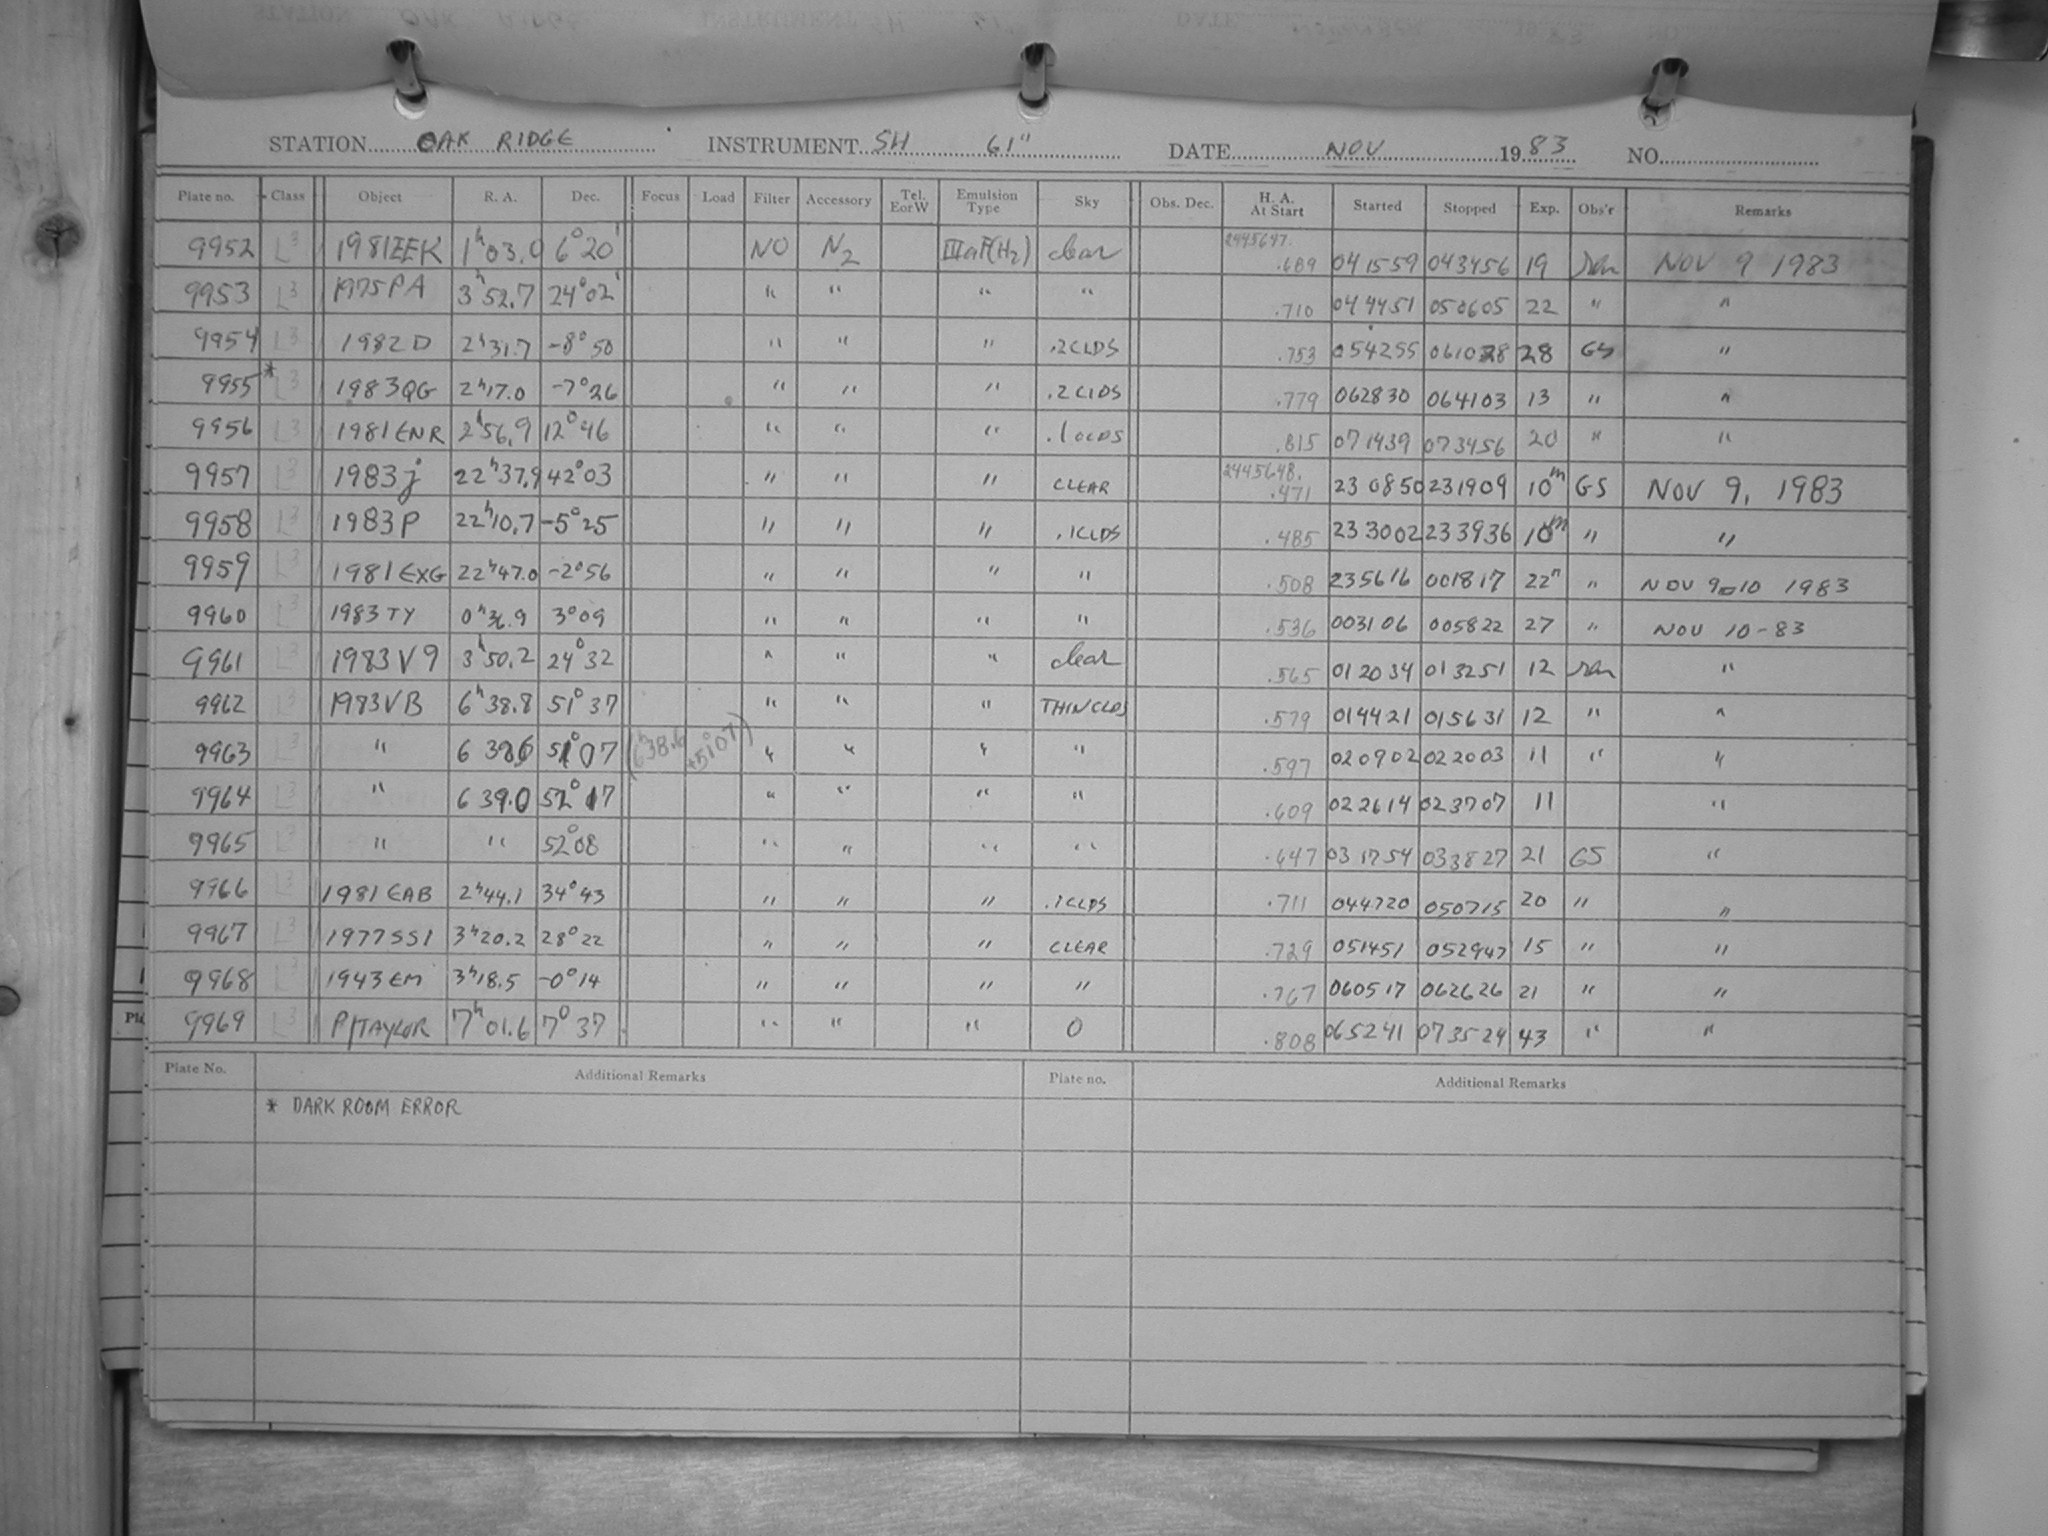 STATION OAK RIDGE INSTRUMENT SH 61" DATE NOV 1983 NO.
Plate no. Class Object R. A. Dec. Focus Load Filter Accessory Tel. E or W Emulsion Type Sky Obs. Dec. H. A. At Start Started Stopped Exp. Obs'r Remarks
9952 L3 1981EEK 1h03.0 6°20' NO N2 IIIaF(H2) clear 2445647. .689 041559 043456 19 NOV 9 1983
9953 L3 1975PA 3h52.7 24°02' " " " " .710 044451 050605 22 " "
9954 L3 1982D 2h31.7 -8°50 " " " .2CLDS .753 054255 061028 28 GS "
9955* L3 1983QG 2h17.0 -7°26 " " " .2CLDS .779 062830 064103 13 " "
9956 L3 1981ENR 2h56.9 12°46 " " " .1CLDS .815 071439 073456 20 " "
9957 L3 1983j 22h37.9 42°03 " " " CLEAR 2445648. .471 230850 231909 10m GS NOV 9, 1983
9958 L3 1983P 22h10.7 -5°25 " " " .1CLDS .485 233002 233936 10m " "
9959 L3 1981EXG 22h47.0 -2°56 " " " " .508 235616 001817 22m " NOV 9-10 1983
9960 L3 1983TY 0h36.9 3°09 " " " " .536 003106 005822 27 " NOV 10-83
9961 L3 1983V9 3h50.2 24°32 " " " clear .565 012034 013251 12 "
9962 L3 1983VB 6h38.8 51°37 " " " THIN CLDS .579 014421 015631 12 " "
9963 L3 " 6 38.6 51°07 (6h38.6 +51°07) " " " " .597 020902 022003 11 " "
9964 L3 " 6 39.0 52°17 " " " " .609 022614 023707 11 "
9965 L3 " " 52°08 " " " " .647 031754 033827 21 GS "
9966 L3 1981EAB 2h44.1 34°43 " " " .1CLDS .711 044720 050715 20 " "
9967 L3 1977SS1 3h20.2 28°22 " " " CLEAR .729 051451 052947 15 " "
9968 L3 1943EM 3h18.5 -0°14 " " " " .767 060517 062626 21 " "
9969 L3 P/TAYLOR 7h01.6 7°37 " " " 0 .808 065241 073524 43 " "
Plate No. Additional Remarks Plate no. Additional Remarks
* DARK ROOM ERROR